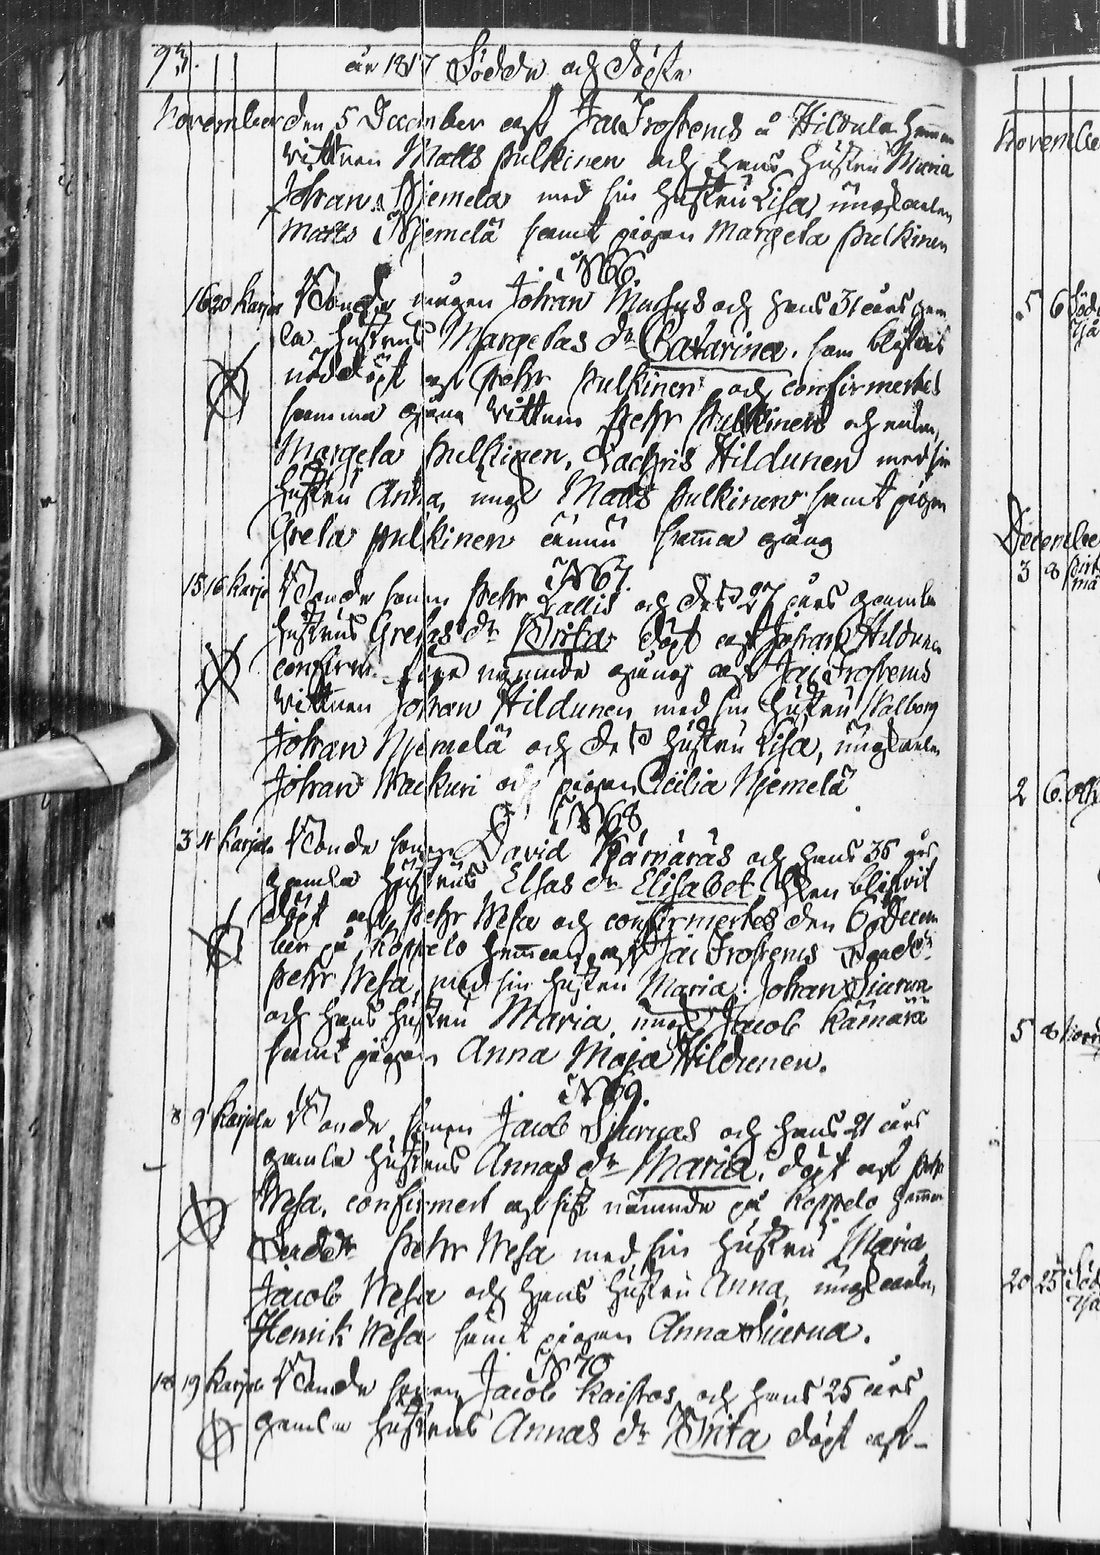 93. år 1817 Födde och Döpte
November den 5 December af Jac Frosterus å Hildula hemman
vittnen Matts Pulkinen och hans hustru Maria
Johan Njemelä med sin hustru Lisa, ungkarlen
Matts Njemelä samt pigan Margeta Pulkinen
N 66.
16 20 Karja Bonde mågen Johan och hans 31 års gam
la hustrus Margetas dr Catarina. som blifvit
nöddöpt af Pehr Pulkinen och confirmertes
samma gång vittnen Pehr Pulkinen och enkan,
Margeta Pulkinen, Zachris Hildunen med sin
hustru Anna, ungk Matts Pulkinen samt pigan
Greta Pulkinen samma gång
N 67.
15 16 Karja Bonde sonen Pehr Lallis och des 27 års gamla
hustrus Gretas dr Brita döpt af Johan Hildunen
confirm. före nämnde gång af Jac Frosterus
vittnen Johan Hildunen med sin hustru Walborg
Johan Njemelä och des hustru Lisa, ungkarlen
Johan Wackuri och pigan Cicilia Njemelä
N 68
3 4 Karjal Bonde sonen David Kämäräs och hans 35 års
gamla hustrus Elsas dr Elisabet som blifvit
döpt af Pehr Wesa och confirmertes den 6 Decem
ber på Koppelo hemman af Jac Frosterus Faddr
Pehr Wesa med sin hustru Maria. Johan Siurua
och hans hustru Maria, ungk Jacob Kämärä
samt pigan Anna Maja Hildunen.
N 69.
8 9 Karjala Bonde sonen Jacob Siuruas och hans 21 års
gamla hustrus Annas dr Maria. döpt af Pehr
Wesa, confirmert af sist nämnde på Koppelo hemman
Faddr Pehr Wesa med sin hustru Maria
Jacob Wesa och hans hustru Anna, ungkarlen,
Henrik Wesa samt pigan Anna Siurua.
N 70
18 19 Karjal Bonde sonen Jacob Kaistos och hans 25 års
gamla hustrus Annas dr Brita döpt af
November
5 6
December
3 8
2 6.
5 8
20 25